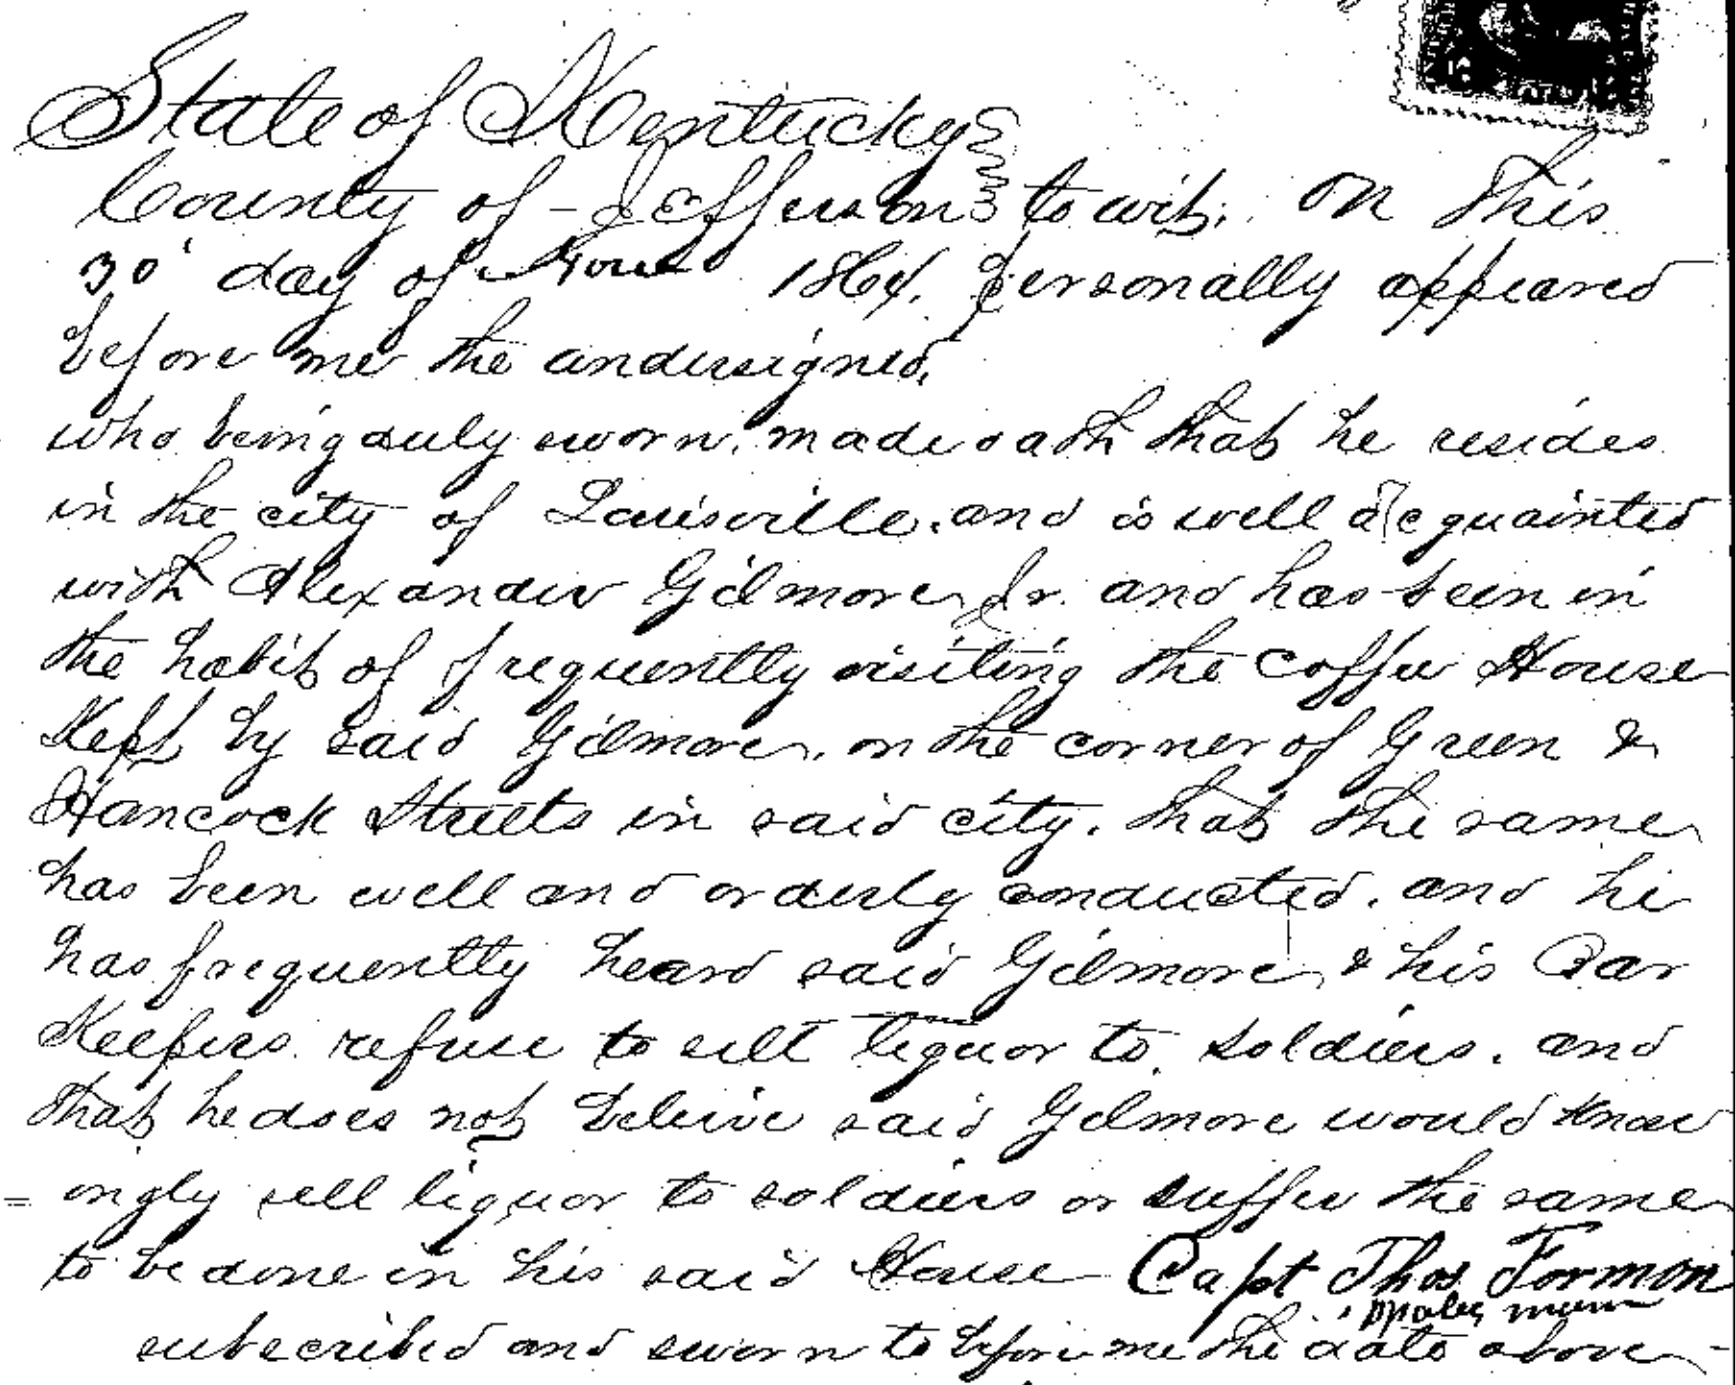 State of Kentucky
County of Jefferson to wit; On this
30' day of Novr 1864. personally appeared
before me the undersigned,
who being duly sworn, made oath that he resides
in the city of Louisville, and is well acquainted
with Alexander Gilmore Jr. and has been in
the habit of frequently visiting the Coffee House
Kept by said Gilmore, on the corner of Green &
Hancock Streets in said city, that the same
has been well and orderly conducted, and he
has frequently heard said Gilmore & his Bar
Keepers refuse to sell liquor to soldiers, and
that he does not beleive said Gilmore would know
= ingly sell liquor to soldiers or suffer the same
to be done in his said House Capt Thos Formon
subscribed and sworn to before me the date above